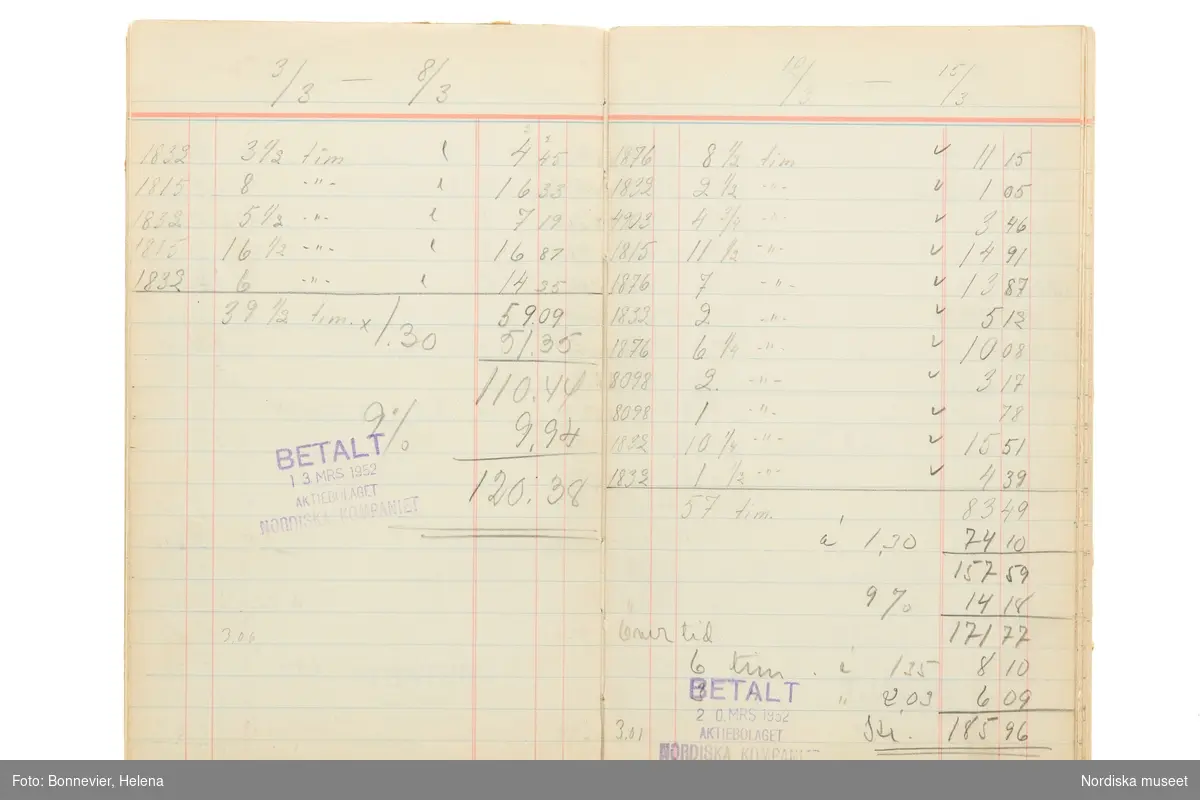 3/3 — 8/3
1832 3 1/2 tim 4 45
1815 8 -"- 16 33
1832 5 1/2 -"- 7 19
1815 16 1/2 -"- 16 87
1832 6 -"- 14 25
39 1/2 tim. x 1.30 59.09
51.35
110.44
9% 9,94
120.38
BETALT
13 MRS 1952
AKTIEBOLAGET
NORDISKA KOMPANIET
3.06
10/3 — 15/3
1876 8 1/2 tim ✓ 11 15
1832 2 1/2 -"- ✓ 1 05
4903 4 3/4 -"- ✓ 3 46
1815 11 1/2 -"- ✓ 14 91
1876 7 -"- ✓ 13 87
1832 2 -"- ✓ 5 12
1876 6 1/4 -"- ✓ 10 08
8098 2 -"- ✓ 3 17
8098 1 -"- ✓ 78
1832 10 1/4 -"- ✓ 15 51
1832 1 1/2 -"- ✓ 4 39
57 tim. 83 49
á 1,30 74 10
157 59
9% 14 18
Över tid 171 77
6 tim. á 135 8 10
3 " 2,03 6 09
3.01 Kr. 185 96
BETALT
20 MRS 1952
AKTIEBOLAGET
NORDISKA KOMPANIET
Foto: Bonnevier, Helena
Nordiska museet